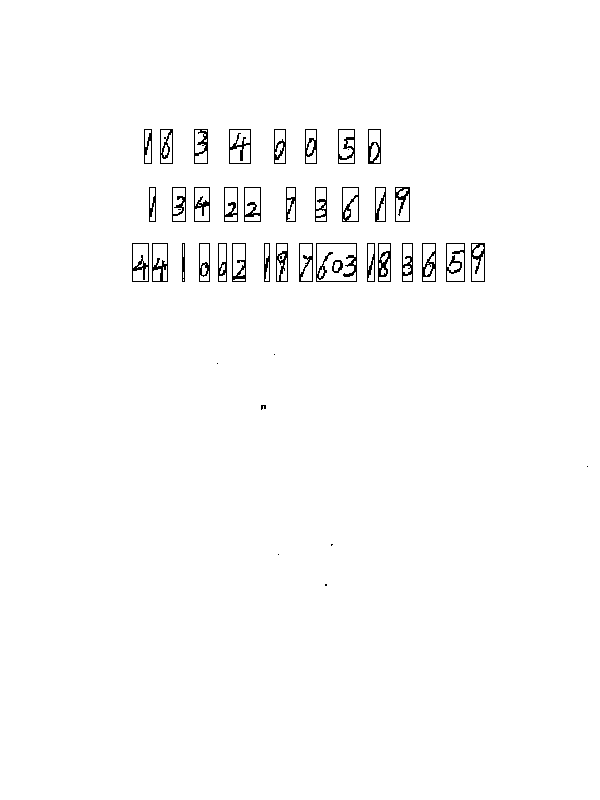 18 3 4 0 0 5 0
1 3 4 2 2 7 3 6 1 9
4 4 1 0 0 2 1 9 7 6 0 3 1 8 3 6 5 9